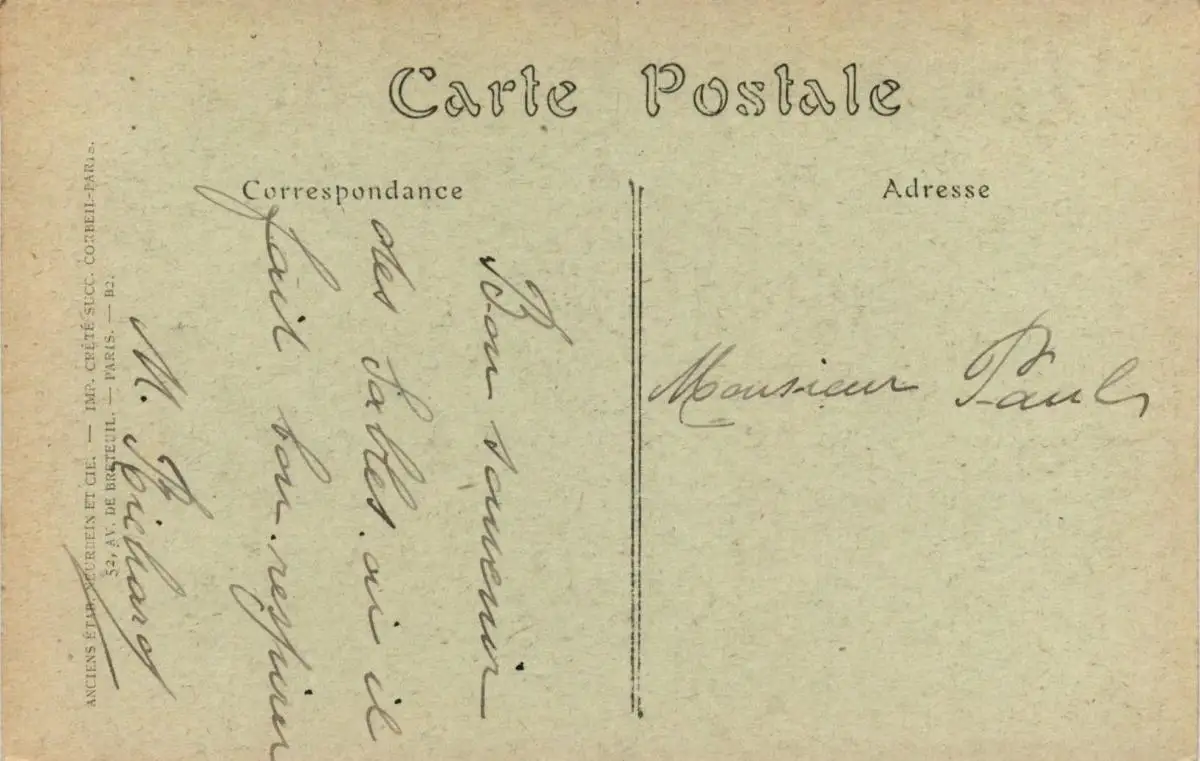 Carte Postale
Correspondance
Adresse
Bon souvenir
des Sables. où il
fait bon respirer
M. Richard
Monsieur Paul
ANCIENS ÉTAB. NEURDEIN ET CIE. — IMP. CRÉTÉ SUCC. CORBEIL-PARIS.
52, AV. DE BRETEUIL. — PARIS. — B2.